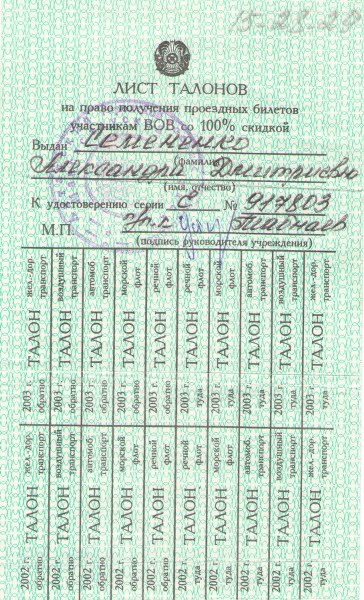 15-28-28
ЛИСТ ТАЛОНОВ
на право получения проездных билетов
участникам ВОВ со 100% скидкой
Выдан Семененко
(фамилия)
Александр Дмитриевич
(имя, отчество)
К удостоверению серии С № 917803
М.П.
(подпись руководителя учреждения)
жел.-дор. транспорт ТАЛОН 2003 г. обратно
воздушный транспорт ТАЛОН 2003 г. обратно
автомоб. транспорт ТАЛОН 2003 г. обратно
морской флот ТАЛОН 2003 г. обратно
речной флот ТАЛОН 2003 г. обратно
речной флот ТАЛОН 2003 г. туда
морской флот ТАЛОН 2003 г. туда
автомоб. транспорт ТАЛОН 2003 г. туда
воздушный транспорт ТАЛОН 2003 г. туда
жел.-дор. транспорт ТАЛОН 2003 г. туда
жел.-дор. транспорт ТАЛОН 2002 г. обратно
воздушный транспорт ТАЛОН 2002 г. обратно
автомоб. транспорт ТАЛОН 2002 г. обратно
морской флот ТАЛОН 2002 г. обратно
речной флот ТАЛОН 2002 г. обратно
речной флот ТАЛОН 2002 г. туда
морской флот ТАЛОН 2002 г. туда
автомоб. транспорт ТАЛОН 2002 г. туда
воздушный транспорт ТАЛОН 2002 г. туда
жел.-дор. транспорт ТАЛОН 2002 г. туда